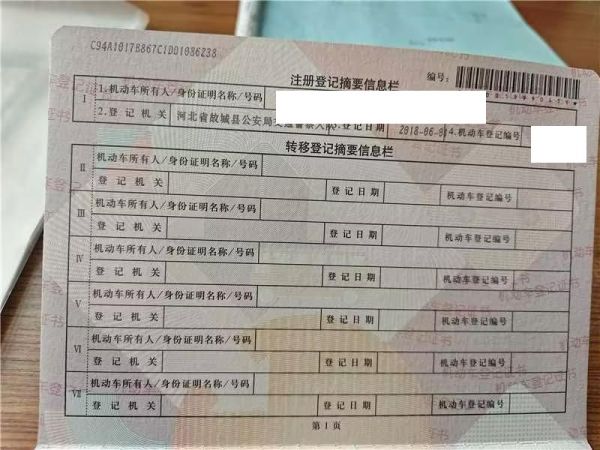 C94A1017B867C1D01086238
注册登记摘要信息栏
编号:
I
1.机动车所有人/身份证明名称/号码
2.登记机关 河北省故城县公安局交通警察大队 3.登记日期 2018-06-01 4.机动车登记编号
转移登记摘要信息栏
II 机动车所有人/身份证明名称/号码
登记机关 登记日期 机动车登记编号
III 机动车所有人/身份证明名称/号码
登记机关 登记日期 机动车登记编号
IV 机动车所有人/身份证明名称/号码
登记机关 登记日期 机动车登记编号
V 机动车所有人/身份证明名称/号码
登记机关 登记日期 机动车登记编号
VI 机动车所有人/身份证明名称/号码
登记机关 登记日期 机动车登记编号
VII 机动车所有人/身份证明名称/号码
登记机关 登记日期 机动车登记编号
第1页